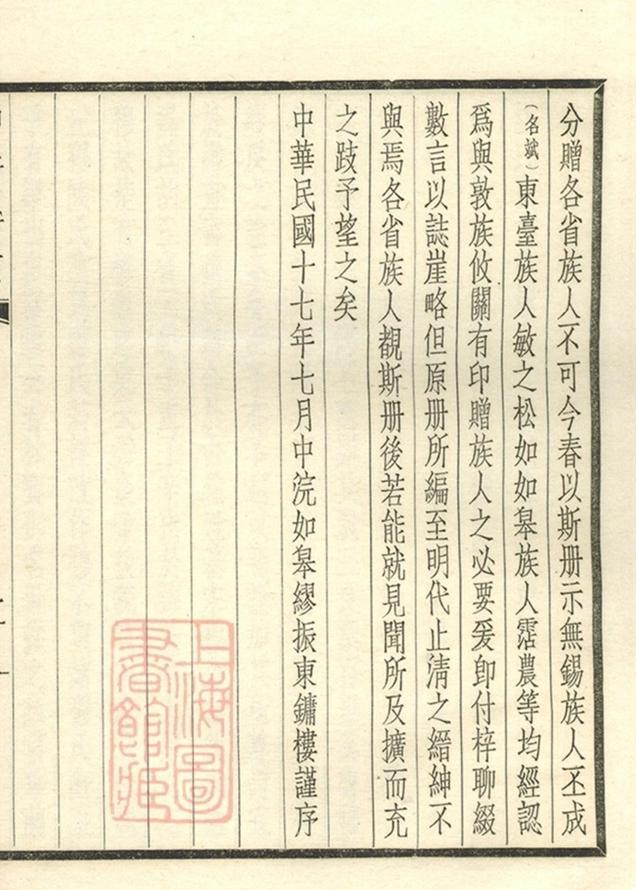 分贈各省族人不可今春以斯册示無錫族人丕成
（名斌）東臺族人敏之松如如皋族人霑農等均經認
爲與敦族攸關有印贈族人之必要爰卽付梓聊綴
數言以誌崖略但原册所編至明代止淸之縉紳不
與焉各省族人覩斯册後若能就見聞所及擴而充
之跂予望之矣
中華民國十七年七月中浣如皋繆振東鏞樓謹序
上海圖
書館藏